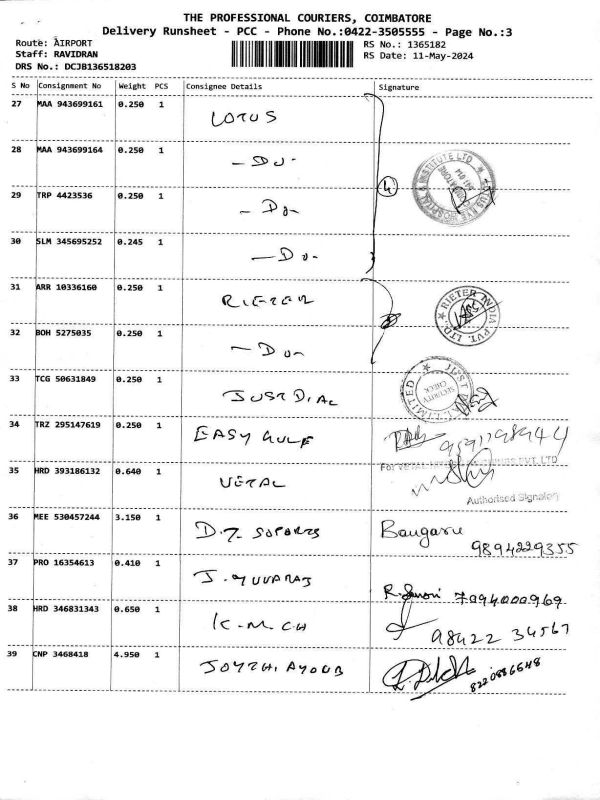 THE PROFESSIONAL COURIERS, COIMBATORE
Delivery Runsheet - PCC - Phone No.:0422-3505555 - Page No.:3
Route: AIRPORT
Staff: RAVIDRAN
DRS No.: DCJB136518203
RS No.: 1365182
RS Date: 11-May-2024
S No Consignment No Weight PCS Consignee Details Signature
27 MAA 943699161 0.250 1 LOTUS
28 MAA 943699164 0.250 1 - Do - 4
29 TRP 4423536 0.250 1 - Do -
30 SLM 345695252 0.245 1 - Do -
31 ARR 10336160 0.250 1 RIETER RIETER INDIA PVT. LTD.
32 BOH 5275035 0.250 1 - Do -
33 TCG 50631849 0.250 1 JUST DIAL SECURITY CHECK
34 TRZ 295147619 0.250 1 EASY GULF
35 HRD 393186132 0.640 1 VETAL Authorised Signatory
36 MEE 530457244 3.150 1 Bangaru 9894229355
37 PRO 16354613 0.410 1 J. YUVARAJ 7094000969
38 HRD 346831343 0.650 1 K.M.CH 98422 34567
39 CNP 3468418 4.950 1 JOYTHI AYOUB 8220886648